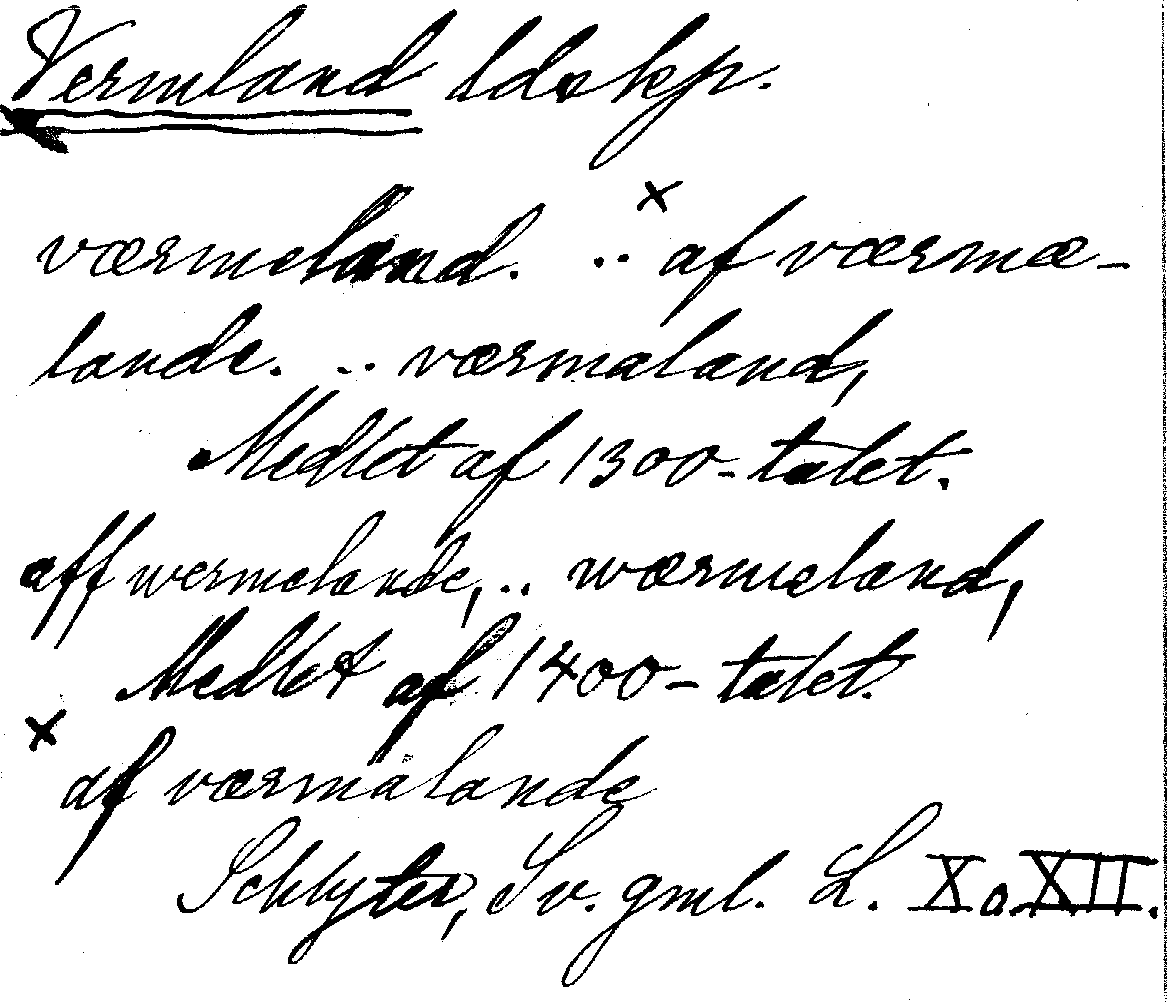 Vermland ldskp.
værmeland. .. × af værmæ-
lande. .. værmaland,
Medlet af 1300-talet.
aff wermelande, .. wærmeland,
Medlet af 1400-talet.
× af værmalande
Schlyter, Sv. gml. L. X o. XII.